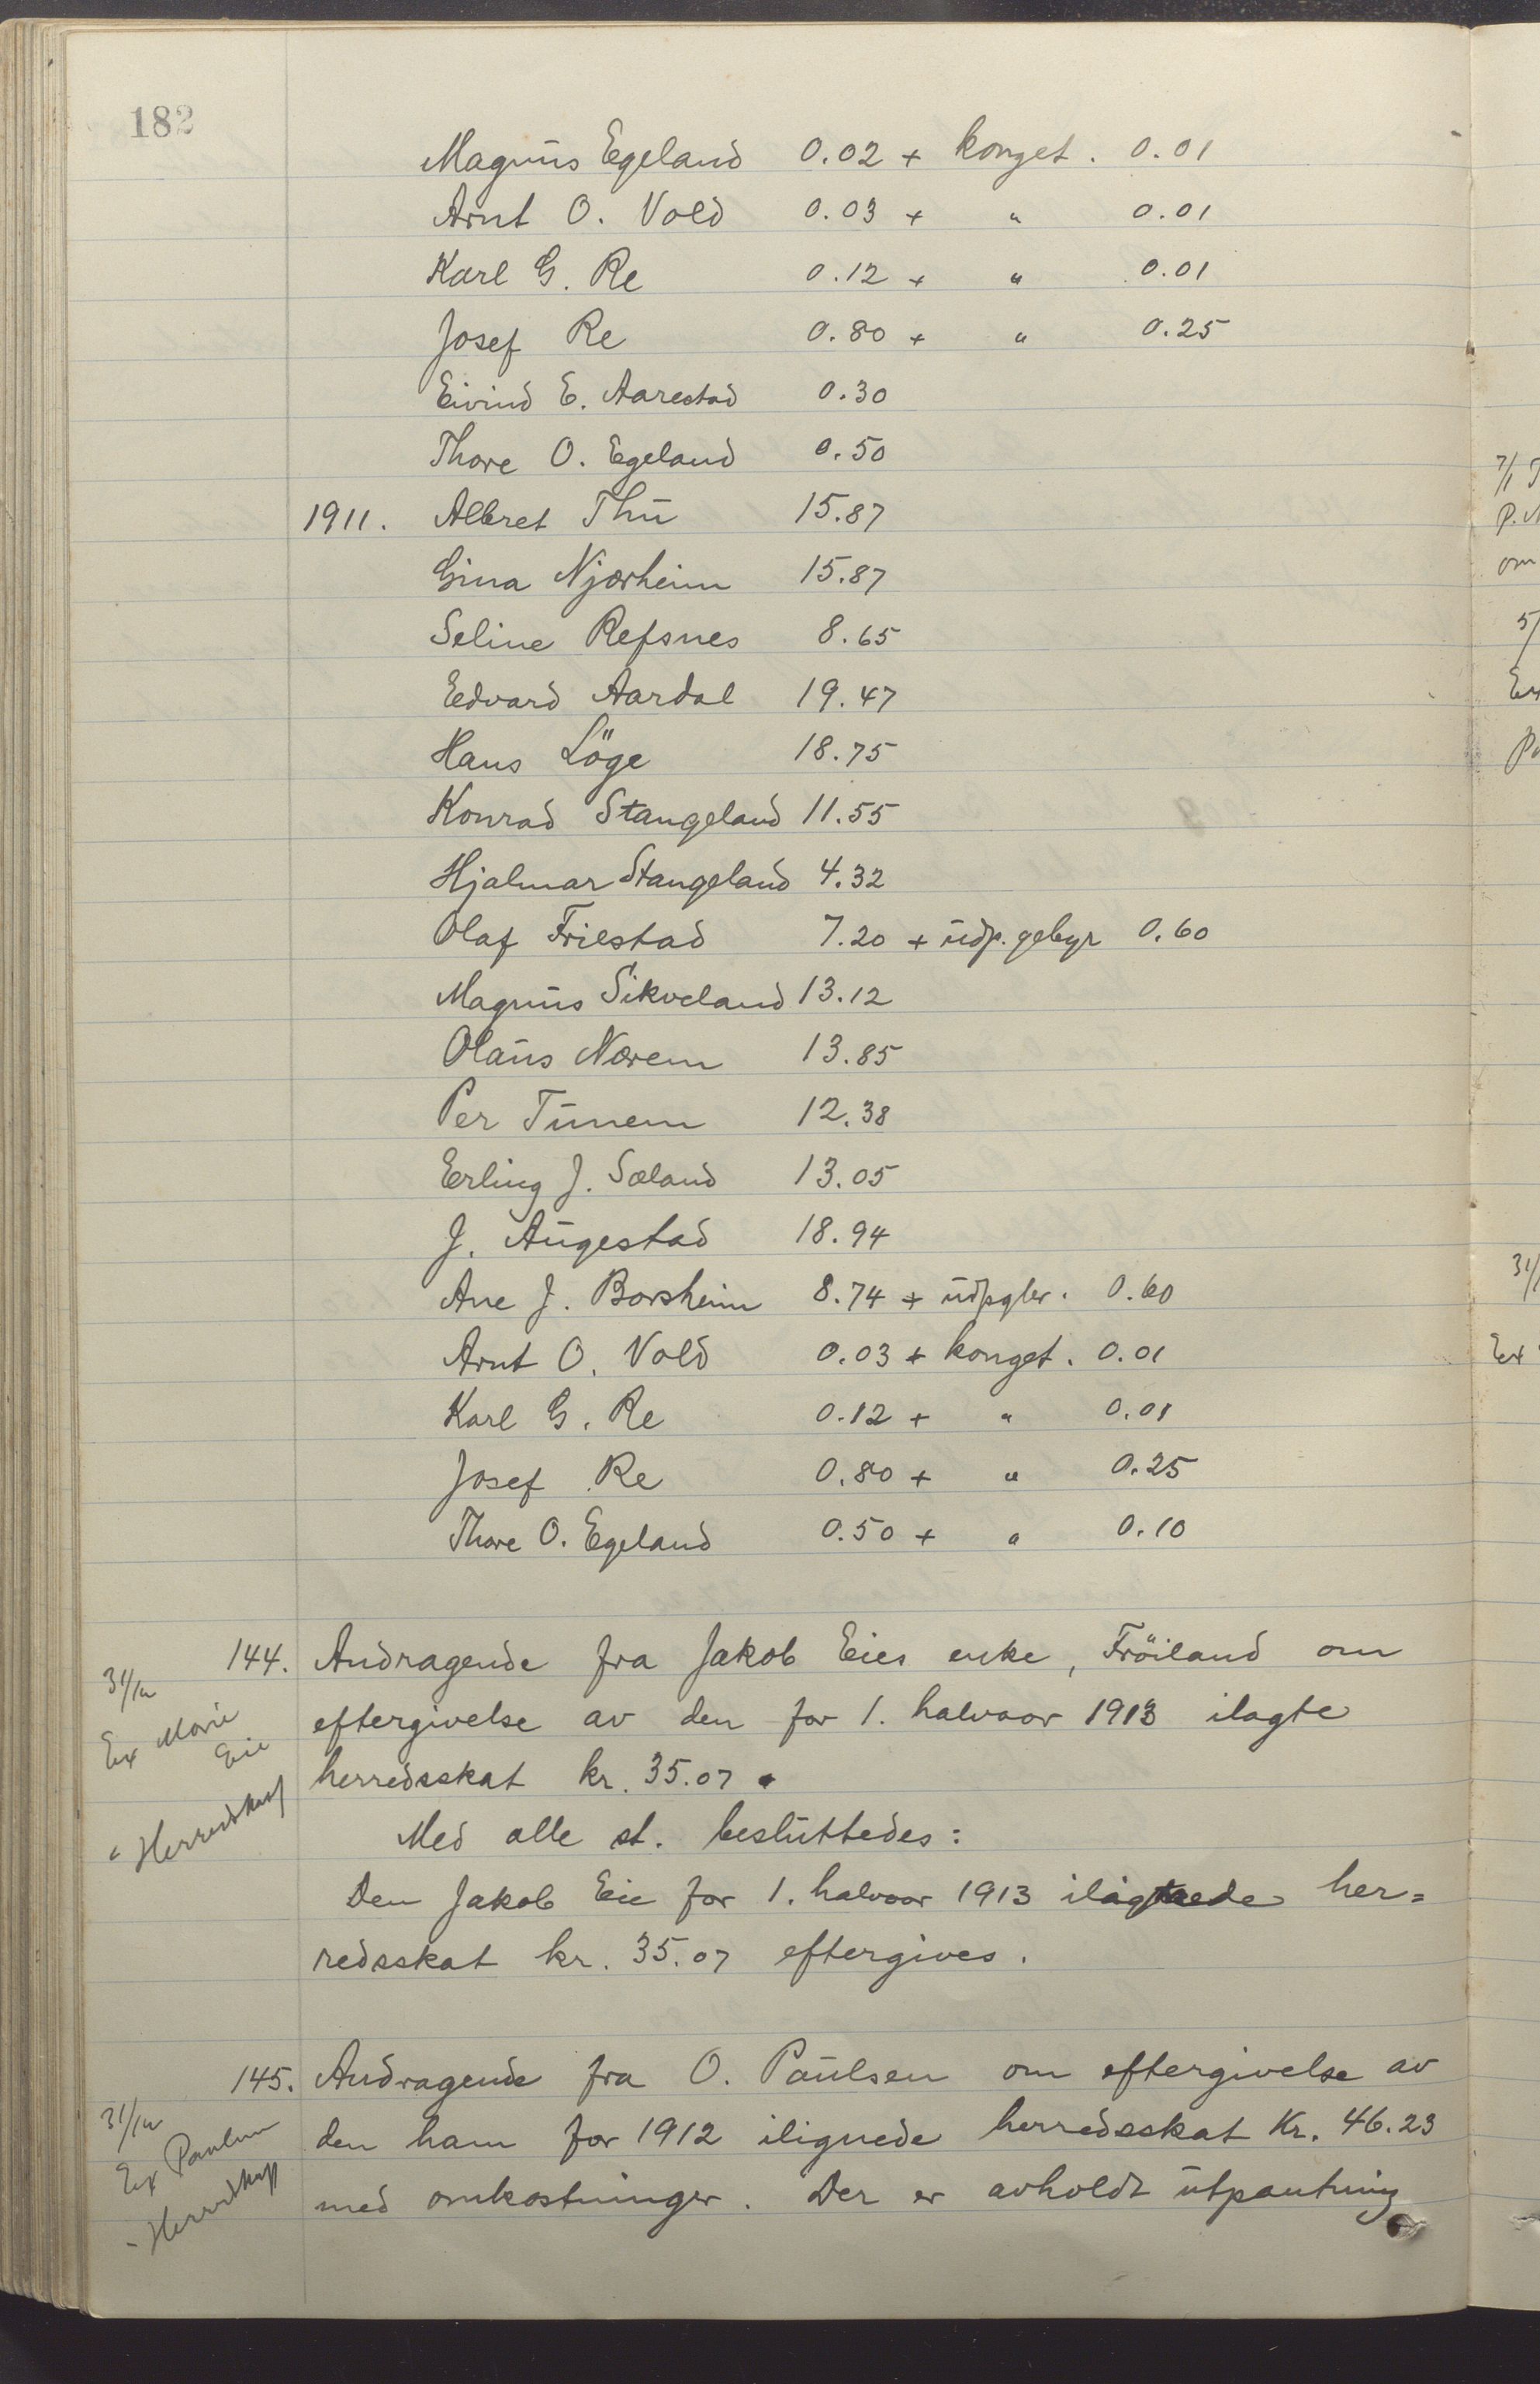 182
Magnus Egeland 0.02 + konget. 0.01
Arnt O. Vold 0.03 + " 0.01
Karl G. Re 0.12 + " 0.01
Josef Re 0.80 + " 0.25
Eivind E. Aarestad 0.30
Thore O. Egeland 0.50
1911. Albret Thu 15.87
Gina Njærheim 15.87
Seline Refsnes 8.65
Edvard Aardal 19.47
Hans Löge 18.75
Konrad Stangeland 11.55
Hjalmar Stangeland 4.32
Olaf Friestad 7.20 + udp. gebyr 0.60
Magnus Sikveland 13.12
Olaus Nærem 13.85
Per Tunem 12.38
Erling J. Sæland 13.05
J. Augestad 18.94
Ane J. Borsheim 8.74 + udpgbr. 0.60
Arnt O. Vold 0.03 + konget. 0.01
Karl G. Re 0.12 + " 0.01
Josef Re 0.80 + " 0.25
Thore O. Egeland 0.50 + " 0.10
144. Andragende fra Jakob Eies enke, Fröiland om
eftergivelse av den for 1. halvaar 1913 ilagte
herredsskat kr. 35.07.
Med alle st. besluttedes:
Den Jakob Eie for 1. halvaar 1913 ilagte her=
redsskat kr. 35.07 eftergives.
Ex Marie
Eie
" Herredskass
145. Andragende fra O. Paulsen om eftergivelse av
den ham for 1912 ilignede herredsskat Kr. 46.23
med omkostninger. Der er avholdt utpantning
Ex Paulsen
" Herredskass